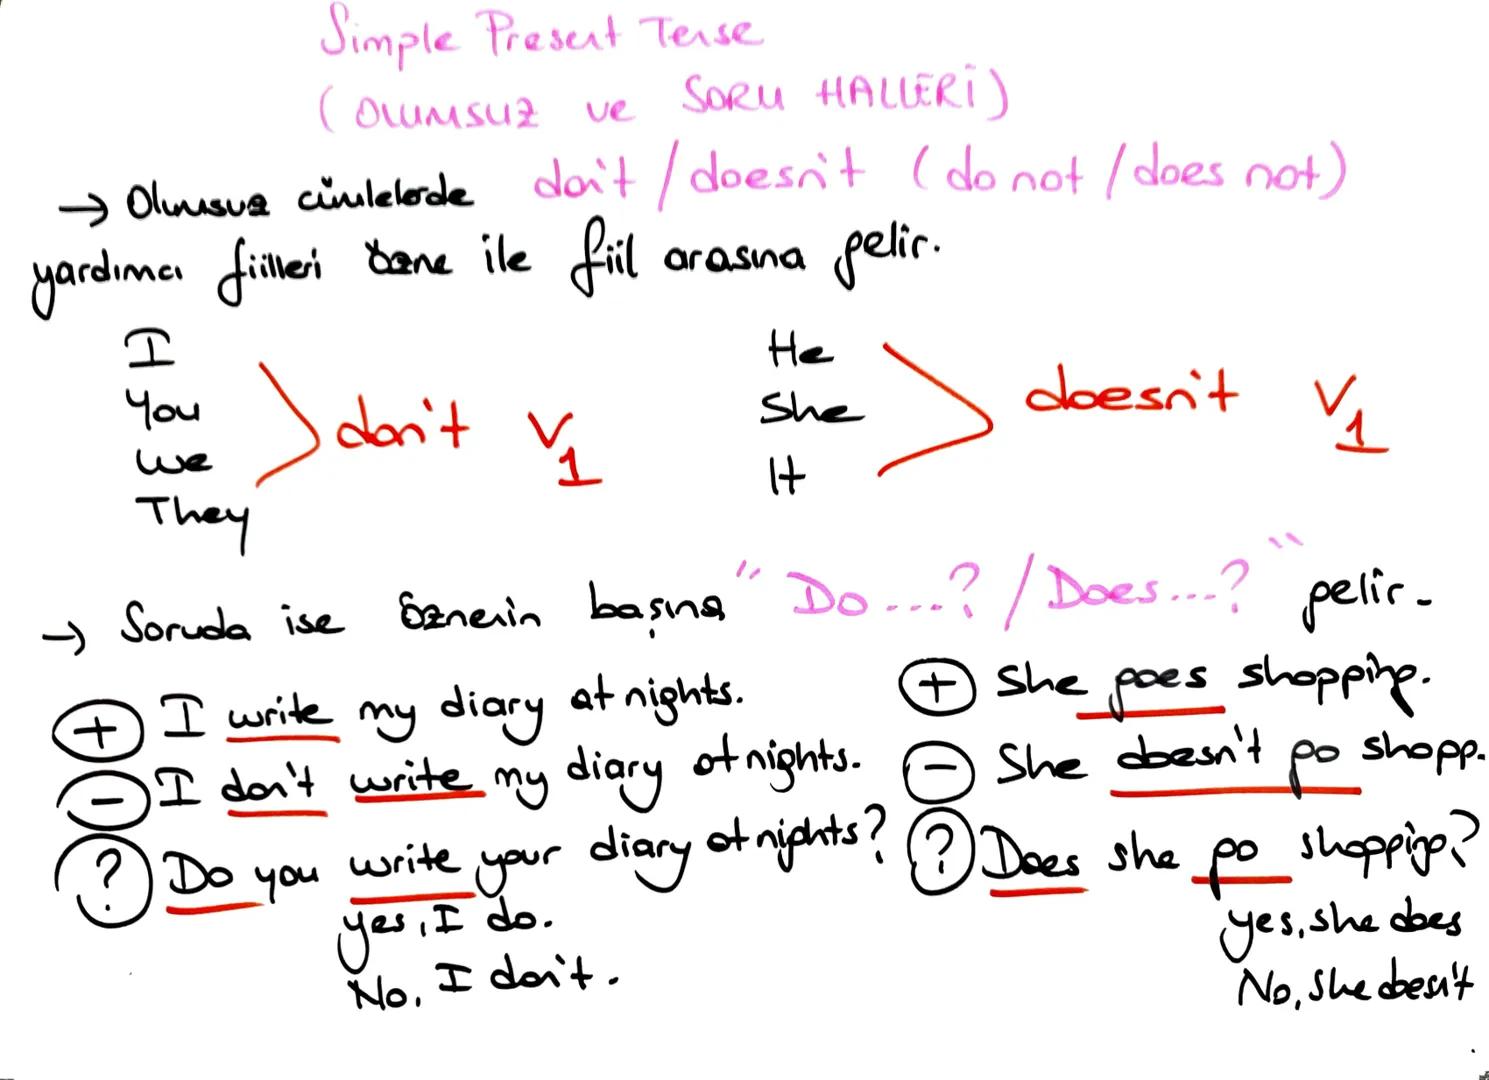 Simple Present Tense
(OLUMSUZ ve SORU HALLERİ)
→ Olumsuz cümlelerde don't / doesn't (do not / does not)
yardımcı fiilleri özne ile fiil arasına gelir.
I
You
We
They
don't V1
He
She
It
doesn't V1
→ Soruda ise öznenin başına "Do ...? / Does ...?" gelir.
+ I write my diary at nights.
- I don't write my diary at nights.
? Do you write your diary at nights?
yes, I do.
No, I don't.
+ She goes shopping.
- She doesn't go shopp.
? Does she go shopping?
yes, she does
No, she doesn't